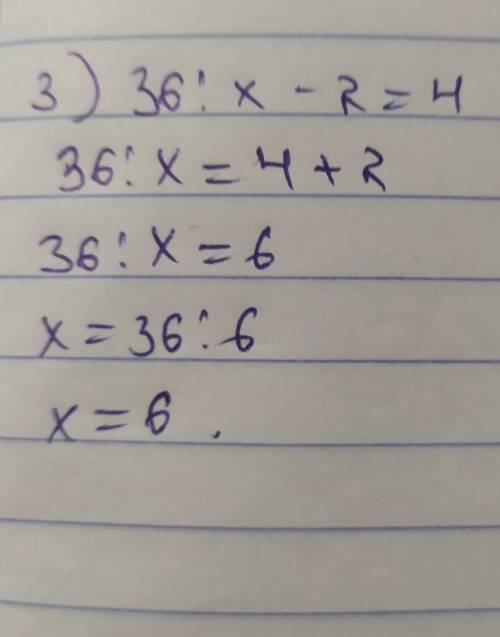 3) 36 : x - 2 = 4
36 : x = 4 + 2
36 : x = 6
x = 36 : 6
x = 6 .